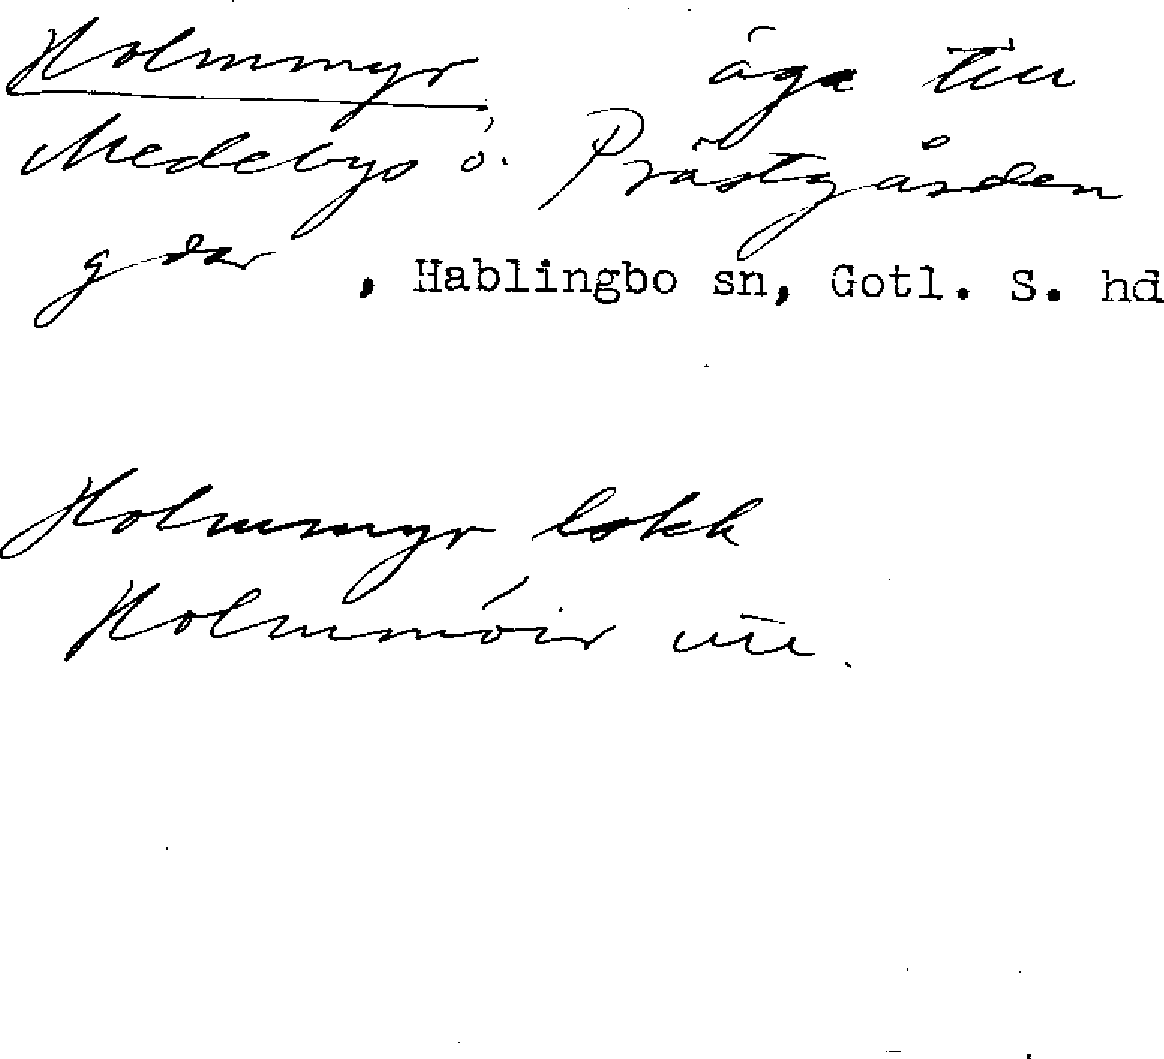 Holmmyr äga till
Medebys o. Prästgården
gdar , Hablingbo sn, Gotl. S. hd
Holmmyr lokk
Holmmóir